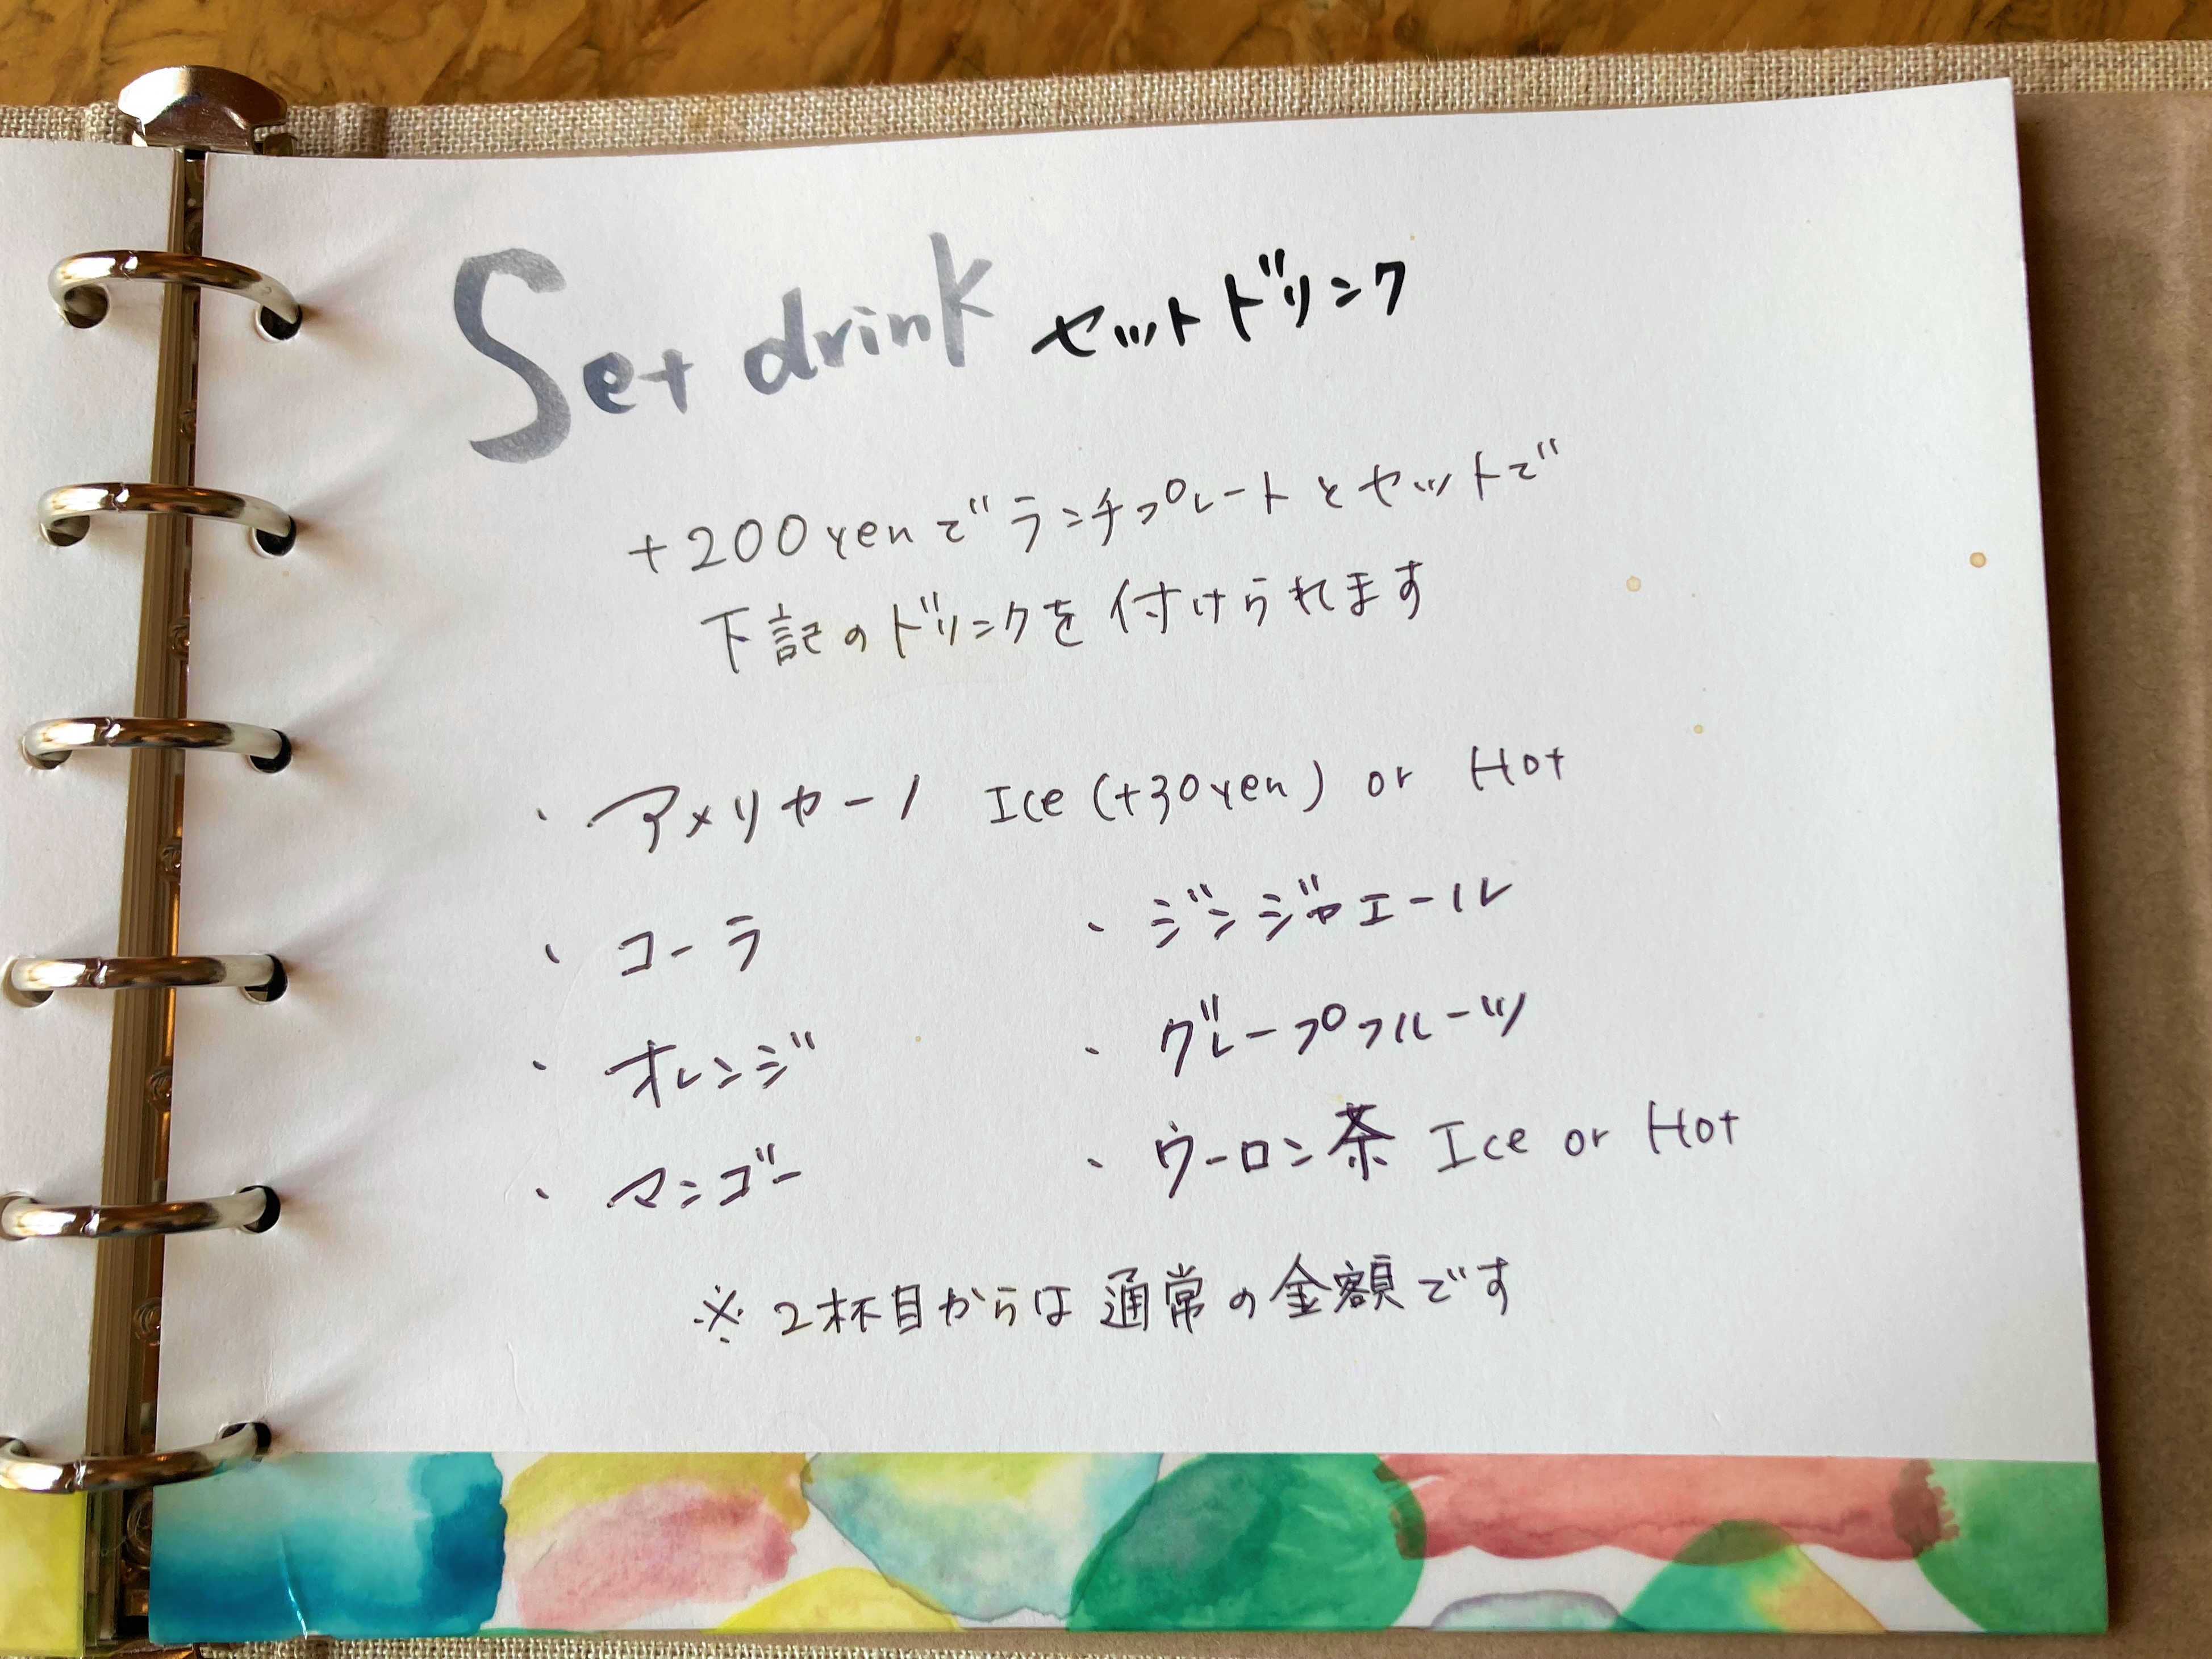 Set drink セットドリンク
+200yenでランチプレートとセットで
下記のドリンクを付けられます
・アメリカーノ Ice (+30yen) or Hot
・コーラ ・ジンジャエール
・オレンジ ・グレープフルーツ
・マンゴー ・ウーロン茶 Ice or Hot
※2杯目からは通常の金額です